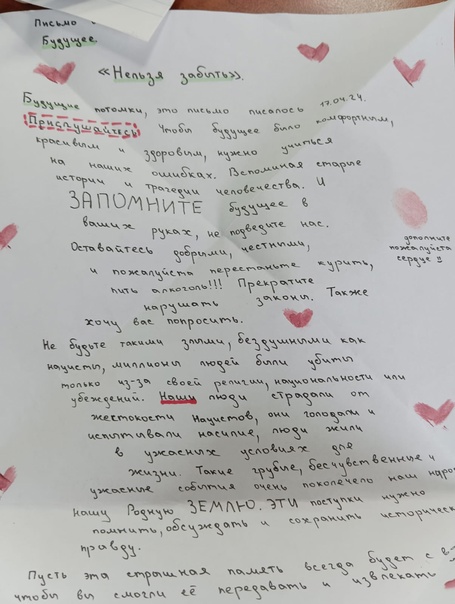 Письмо в
Будущее
«Нельзя забыть».
Будущие потомки, это письмо писалось 17.04.24.
Прислушайтесь! Чтобы будущее было комфортным,
красивым и здоровым, нужно учиться
на наших ошибках. Вспоминая старые
истории и трагедии человечества. И
ЗАПОМНИТЕ будущее в
ваших руках, не подведите нас.
Оставайтесь добрыми, честными,
дополните
пожалуйста
сердце
и пожалуйста перестаньте курить,
пить алкоголь!!! Прекратите
нарушать законы. Также
хочу вас попросить.
Не будьте такими злыми, бездушными как
нацисты, миллионы людей были убиты
только из-за своей религии, национальности или
убеждений. Наши люди страдали от
жестокости Нацистов, они голодали и
испытывали насилие, люди жили
в ужасных условиях для
жизни. Такие грубые, бесчувственные и
ужасные события очень покалечело наш
нашу Родную ЗЕМЛЮ. ЭТИ поступки нужно
помнить, обсуждать и сохранить
правду.
Пусть эта страшная память всегда будет с
чтобы вы смогли её передавать и извлекать